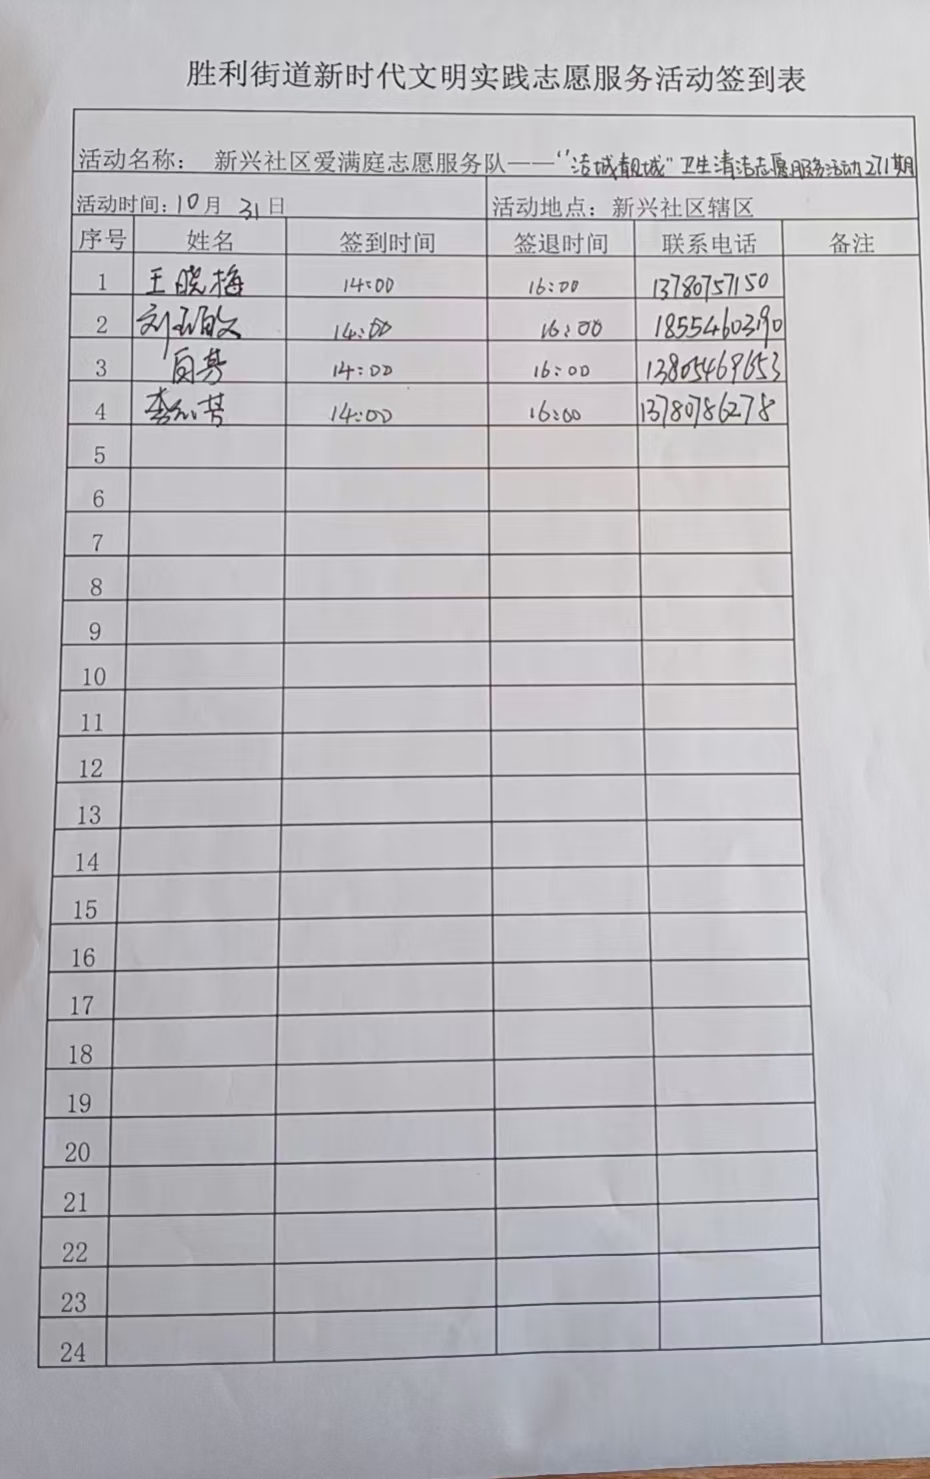 胜利街道新时代文明实践志愿服务活动签到表
活动名称： 新兴社区爱满庭志愿服务队——“洁城靓城”卫生清洁志愿服务活动271期
活动时间：10月 31日 活动地点：新兴社区辖区
序号 姓名 签到时间 签退时间 联系电话 备注
1 王晓梅 14:00 16:00 13780757150
2 刘 14:00 16:00 18554603190
3 芳 14:00 16:00 13805469653
4 李 芳 14:00 16:00 13780786278
5
6
7
8
9
10
11
12
13
14
15
16
17
18
19
20
21
22
23
24